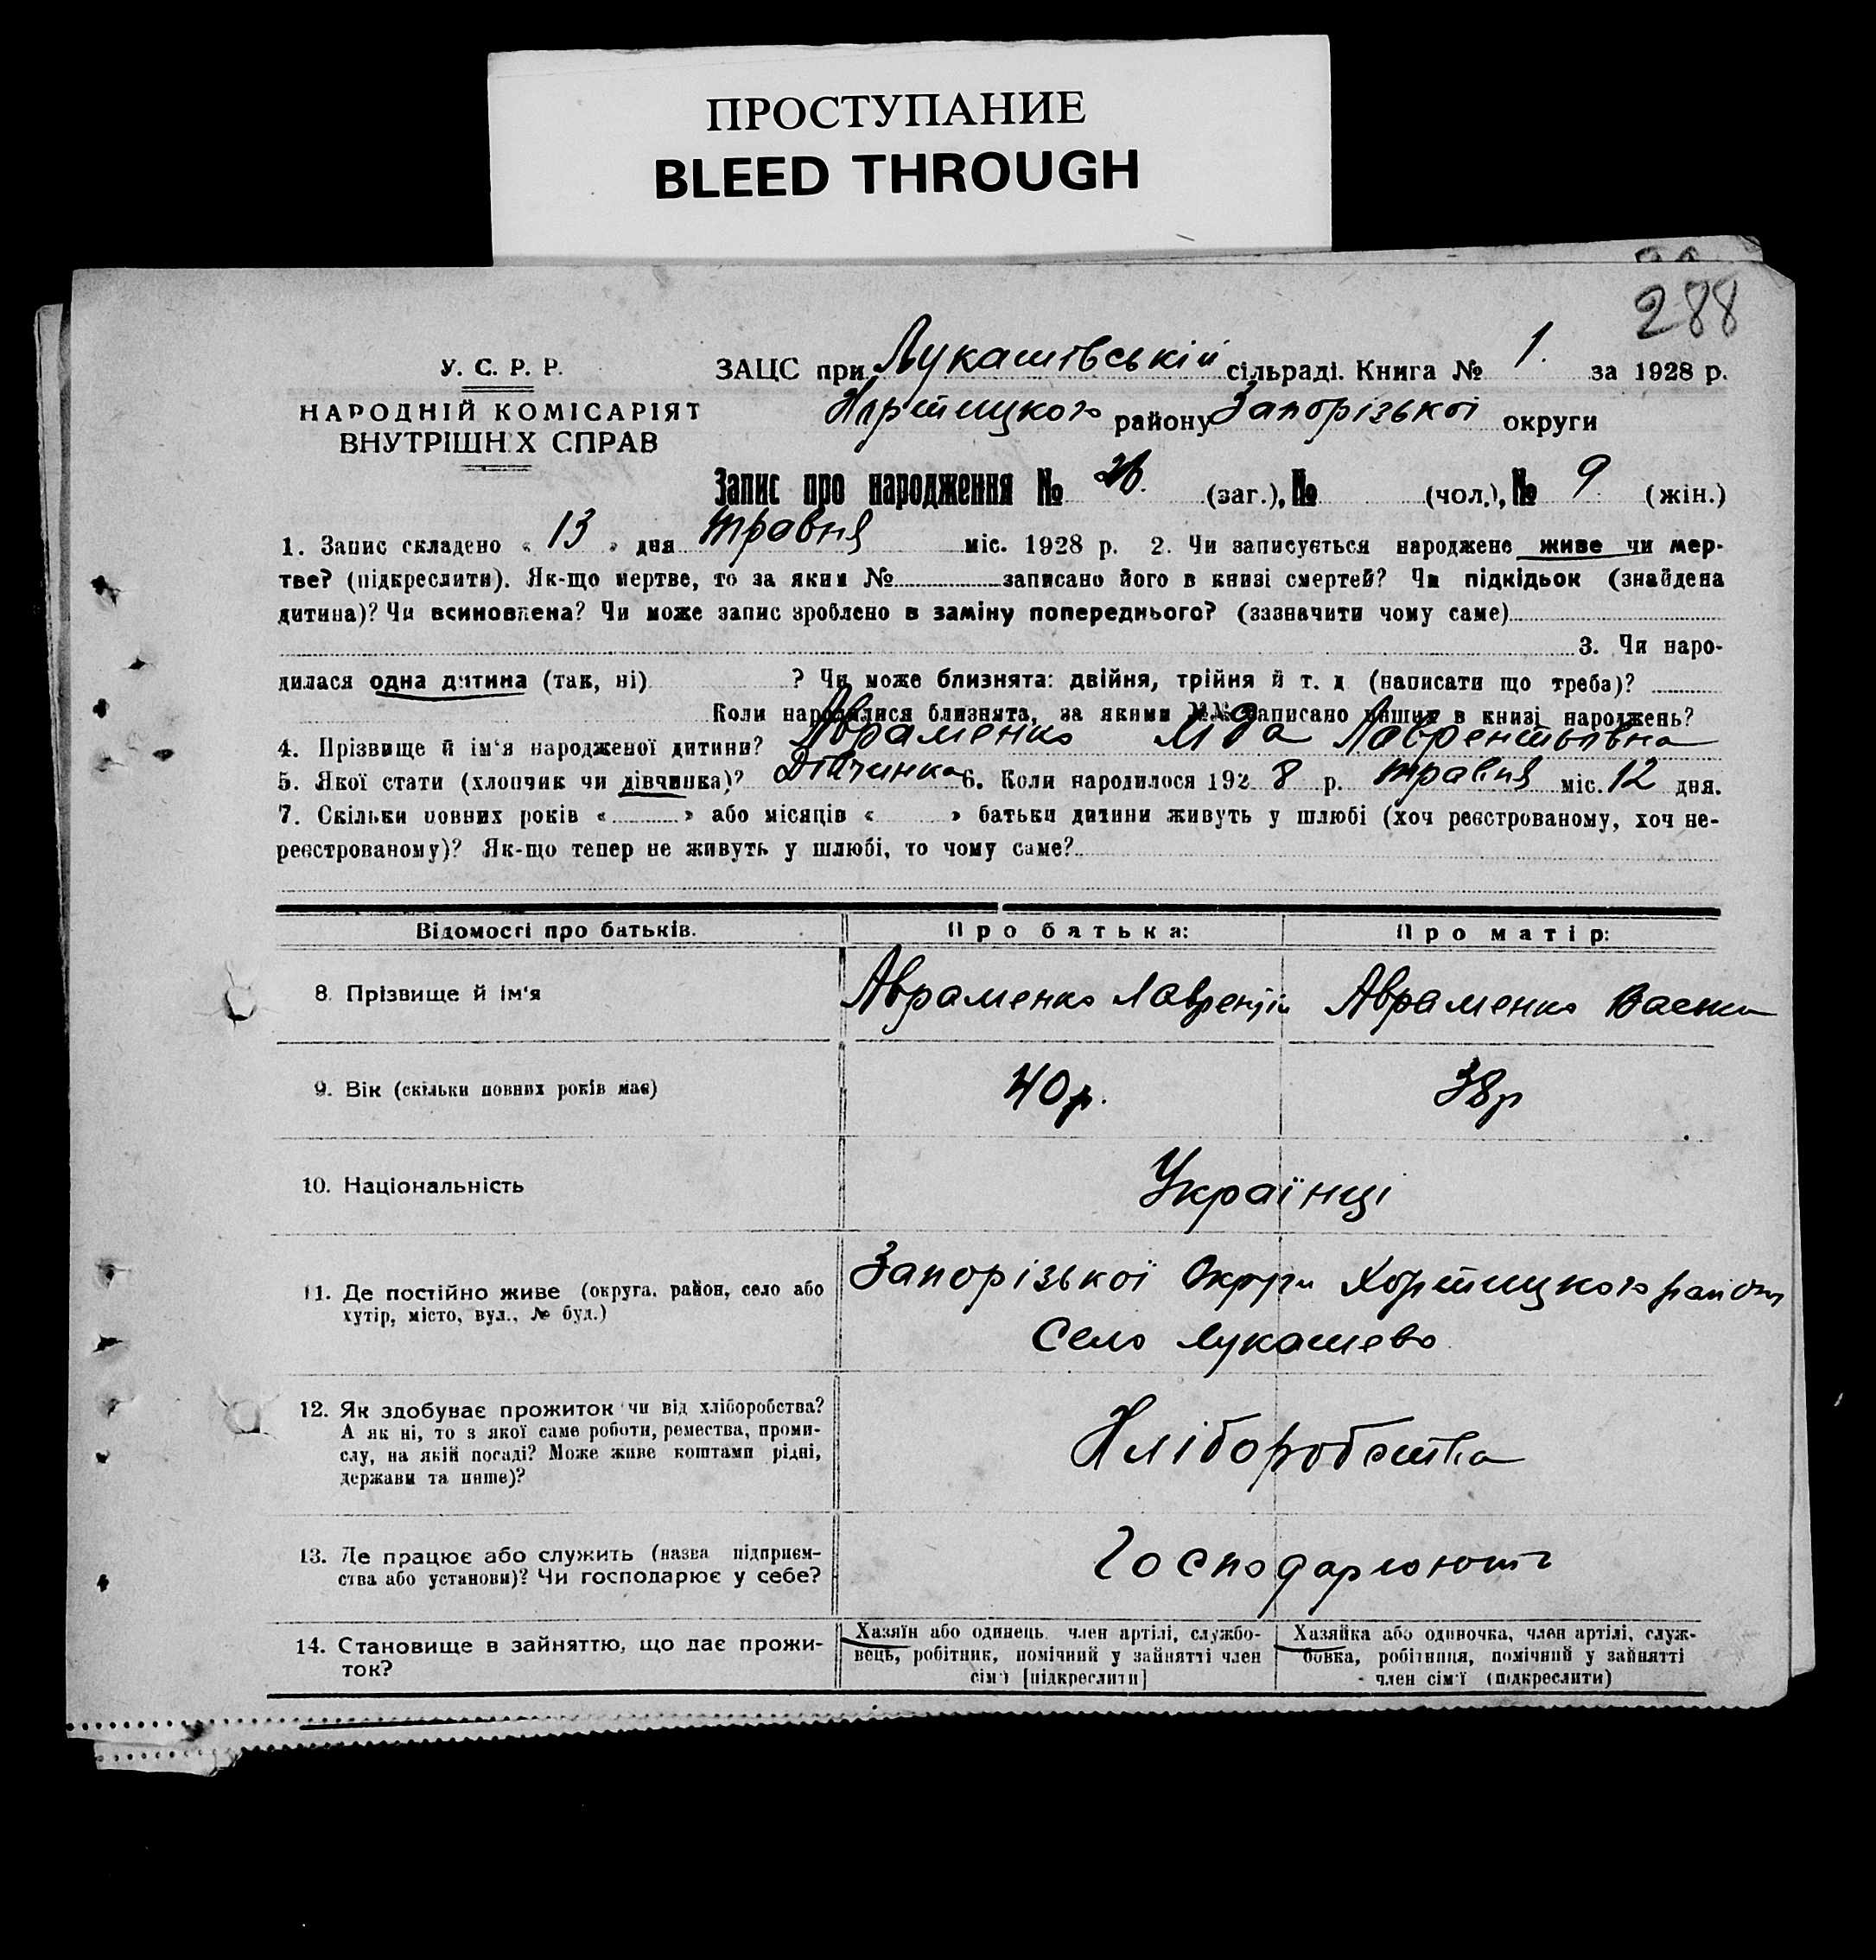 ПРОСТУПАНИЕ
BLEED THROUGH
288
У. С. Р. Р.
ЗАЦС при Лукашівській сільраді. Книга № 1. за 1928 р.
НАРОДНІЙ КОМІСАРІЯТ
Хортицкого району Запорізької округи
ВНУТРІШН Х СПРАВ
Запис про народження № (заг.), № (чол.), № 9 (жін.)
1. Запис складено « 13 » дня травня міс. 1928 р. 2. Чи записується народжене живе чи мер-
тве? (підкреслити). Як-що мертве, то за яким № записано його в книзі смертей? Чи підкідьок (знайдена
дитина)? Чи всиновлена? Чи може запис зроблено в заміну попереднього? (зазначити чому саме)
3. Чи наро-
дилася одна дитина (так, ні) ? Чи може близнята: двійня, трійня й т. д (написати що треба)?
Коли народилися близнята, за якими №№ записано інших в книзі народжень?
4. Прізвище й ім'я народженої дитини? Авраменко Ліда Лаврентьівна
5. Якої стати (хлопчик чи дівчинка)? Дівчинка 6. Коли народилося 192 8 р. травня міс. 12 дня.
7. Скільки повних років « » або місяців « » батьки дитини живуть у шлюбі (хоч реєстрованому, хоч не-
реєстрованому)? Як-що тепер не живуть у шлюбі, то чому саме?
Відомості про батьків. Про батька: Про матір:
8. Прізвище й ім'я Авраменко Лаврентій Авраменко
9. Вік (скільки повних років має) 40 р. 38 р
10. Національність Українці
11. Де постійно живе (округа, район, село або
хутір, місто, вул., № буд.)
Запорізької Округи Хортицкого району
Село Лукашево
12. Як здобуває прожиток чи від хліборобства?
А як ні, то з якої саме роботи, ремества, проми-
слу, на якій посаді? Може живе коштами рідні,
держави та инше)?
Хліборобства
13. Де працює або служить (назва підприєм-
ства або установи)? Чи господарює у себе?
Господарюють
14. Становище в зайняттю, що дає прожи-
ток?
Хазяїн або одинець, член артілі, службо-
вець, робітник, помічний у зайнятті член
сім'ї [підкреслити]
Хазяйка або одиночка, член артілі, служ-
бовка, робітниця, помічний у зайнятті
член сім'ї (підкреслити)